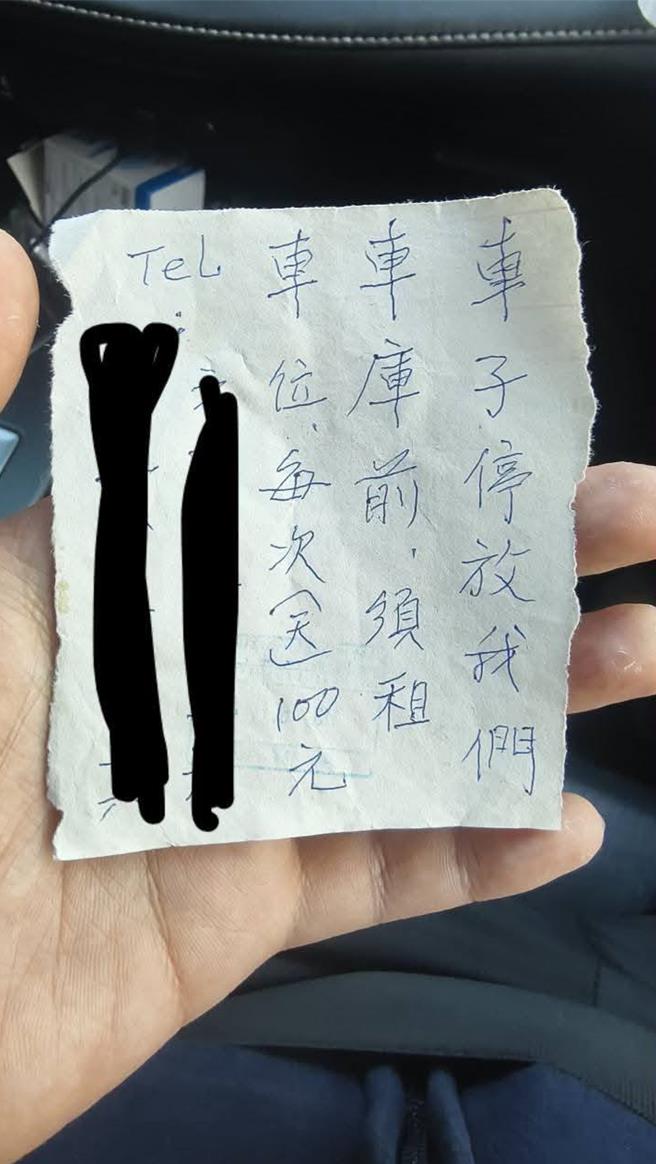 車子停放我們
車庫前，須租
車位，每次(天)100元
TeL: